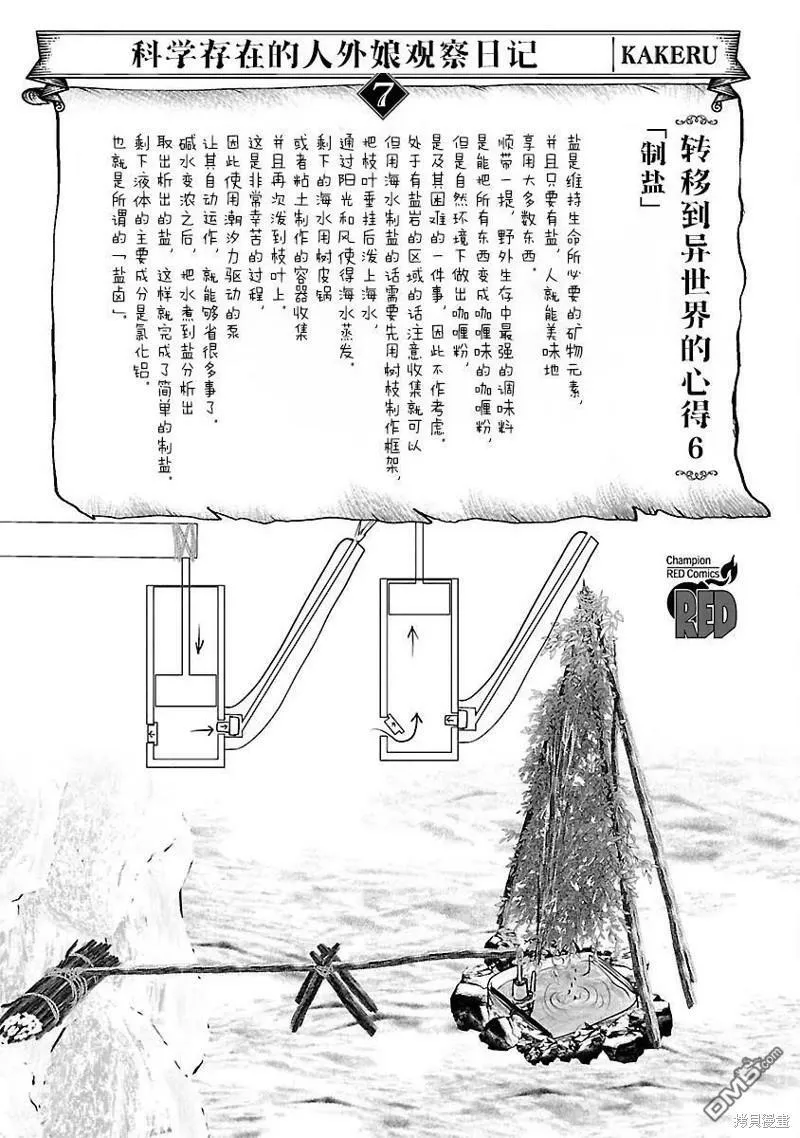 科学存在的人外娘观察日记
KAKERU
7
转移到异世界的心得6
「制盐」
盐是维持生命所必要的矿物元素，
并且只要有盐，人就能美味地
享用大多数东西。
顺带一提，野外生存中最强的调味料
是能把所有东西变成咖喱味的咖喱粉，
但是自然环境下做出咖喱粉，
是及其困难的一件事，因此不作考虑。
处于有盐岩的区域的话注意收集就可以
但用海水制盐的话需要先用树枝制作框架，
把枝叶垂挂后泼上海水，
通过阳光和风使得海水蒸发。
剩下的海水用树皮锅
或者粘土制作的容器收集
并且再次泼到枝叶上。
这是非常辛苦的过程，
因此使用潮汐力驱动的泵
让其自动运作，就能够省很多事了。
碱水变浓之后，把水煮到盐分析出
取出析出的盐，这样就完成了简单的制盐。
剩下液体的主要成分是氯化铝。
也就是所谓的「盐卤」。
Champion
RED Comics
RED
DM5.com
拷貝漫畫